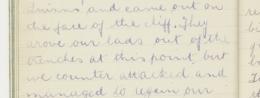 and came out on
the face of the cliff. They
drove our lads out of the
trenches at this point, but
we counter attacked and
managed to regain our